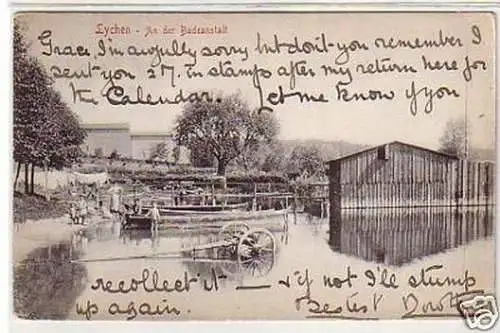 Lychen - An der Badeanstalt
Grace I'm awfully sorry but don't you remember I
sent you 2 M. in stamps after my return here for
the Calendar. Let me know if you
recollect it — & if not I'll stump
up again. Bestest Dorothy